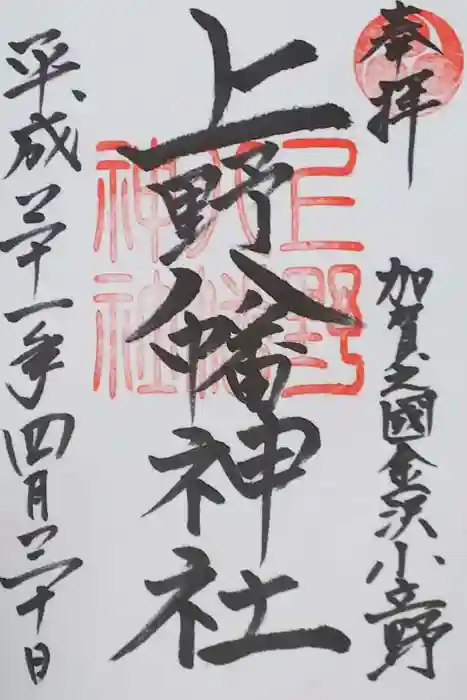 奉拝
加賀之國金沢小立野
上野八幡神社
上野八幡神社
平成三十一年四月三十日